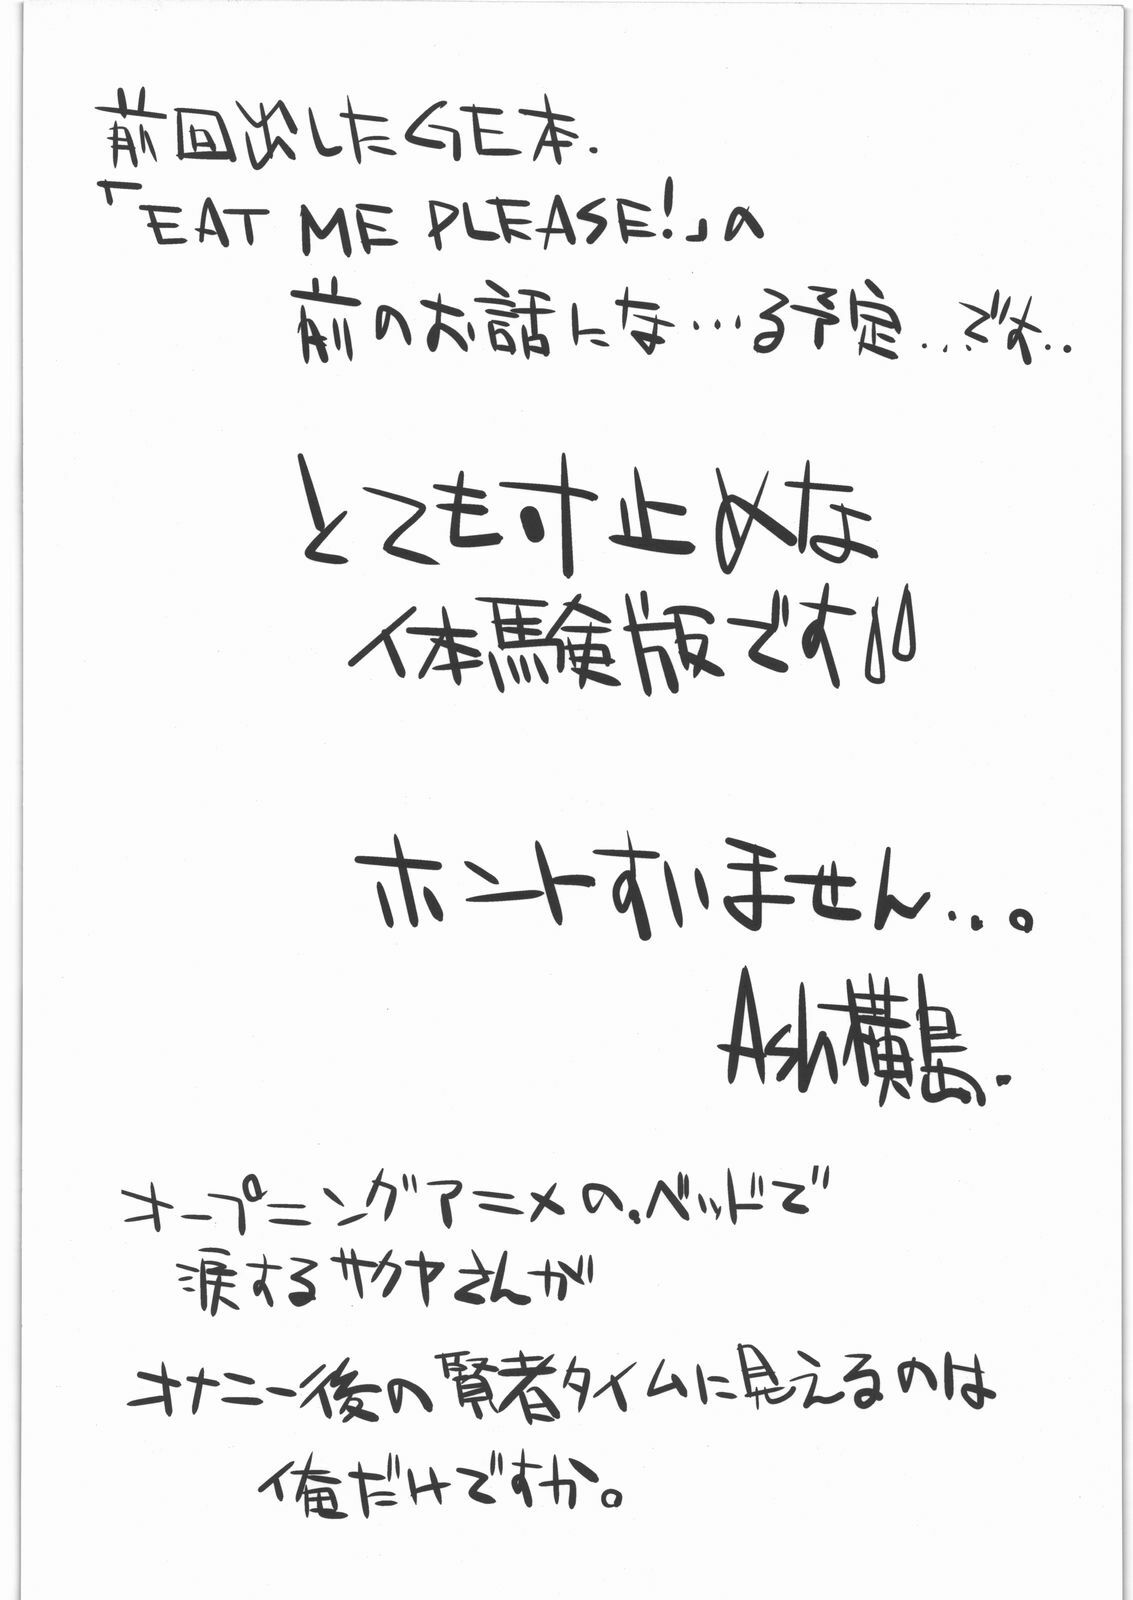 前回出したGE本.
「EAT ME PLEASE!」の
前のお話にな…る予定…です..
とても寸止めな
体験版です
ホントすいません...。
Ash横島.
オープニングアニメの.ベッドで
涙するサクヤさんが
オナニー後の賢者タイムに見えるのは
俺だけですか。